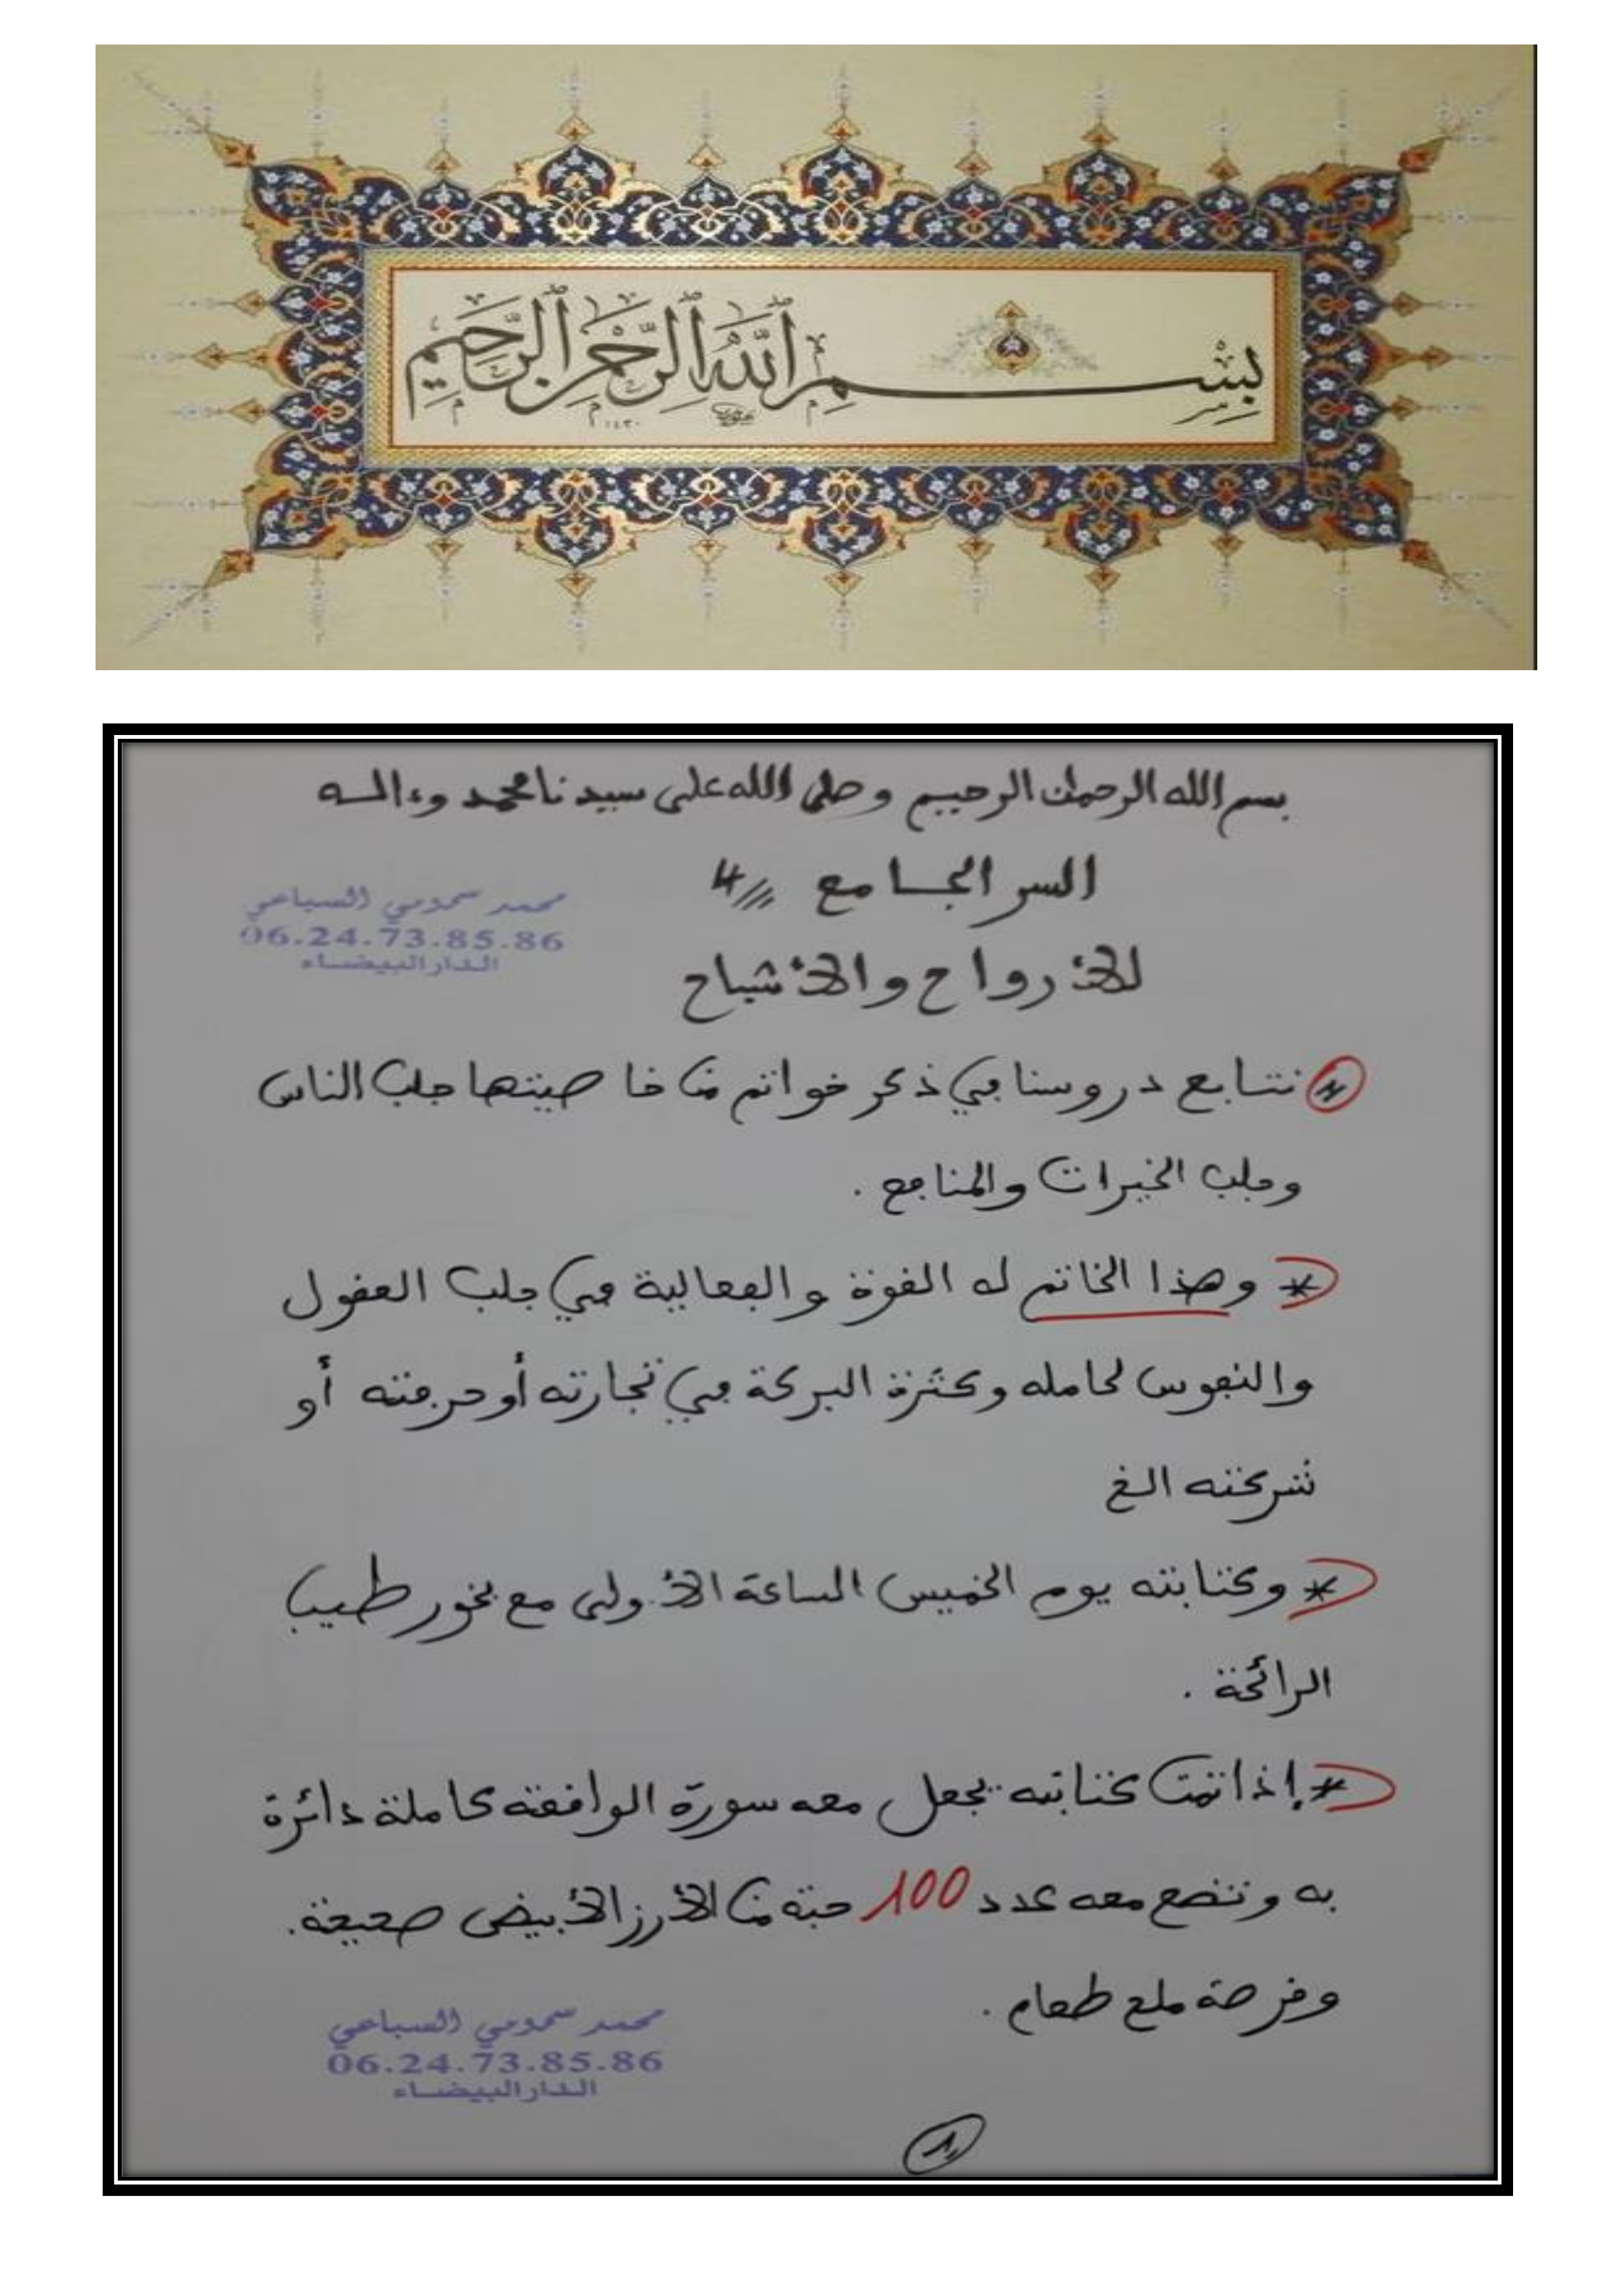 بِسْمِ اللَّهِ الرَّحْمَٰنِ الرَّحِيمِ
١٤٣٠
بسم الله الرحمان الرحيم وصلى الله على سيدنا محمد وءاله
السر الجامع 4
محمد سمومي السباعي
06.24.73.85.86
الدار البيضاء
للأرواح والأشباح
نتابع دروسنا في ذكر خواتم من خاصيتها جلب الناس
وجلب الخيرات والمنافع .
* وهذا الخاتم له القوة والفعالية في جلب العقول
والنفوس لحامله وكثرة البركة في تجارته أو حرفته أو
شركته الخ
* وكتابته يوم الخميس الساعة الأولى مع بخور طيب
الرائحة .
* إذا تمت كتابته يجعل معه سورة الواقعة كاملة دائرة
به وتضع معه عدد 100 حبة من الأرز الأبيض صحيحة.
وقرصة ملح طعام .
محمد سمومي السباعي
06.24.73.85.86
الدار البيضاء
1